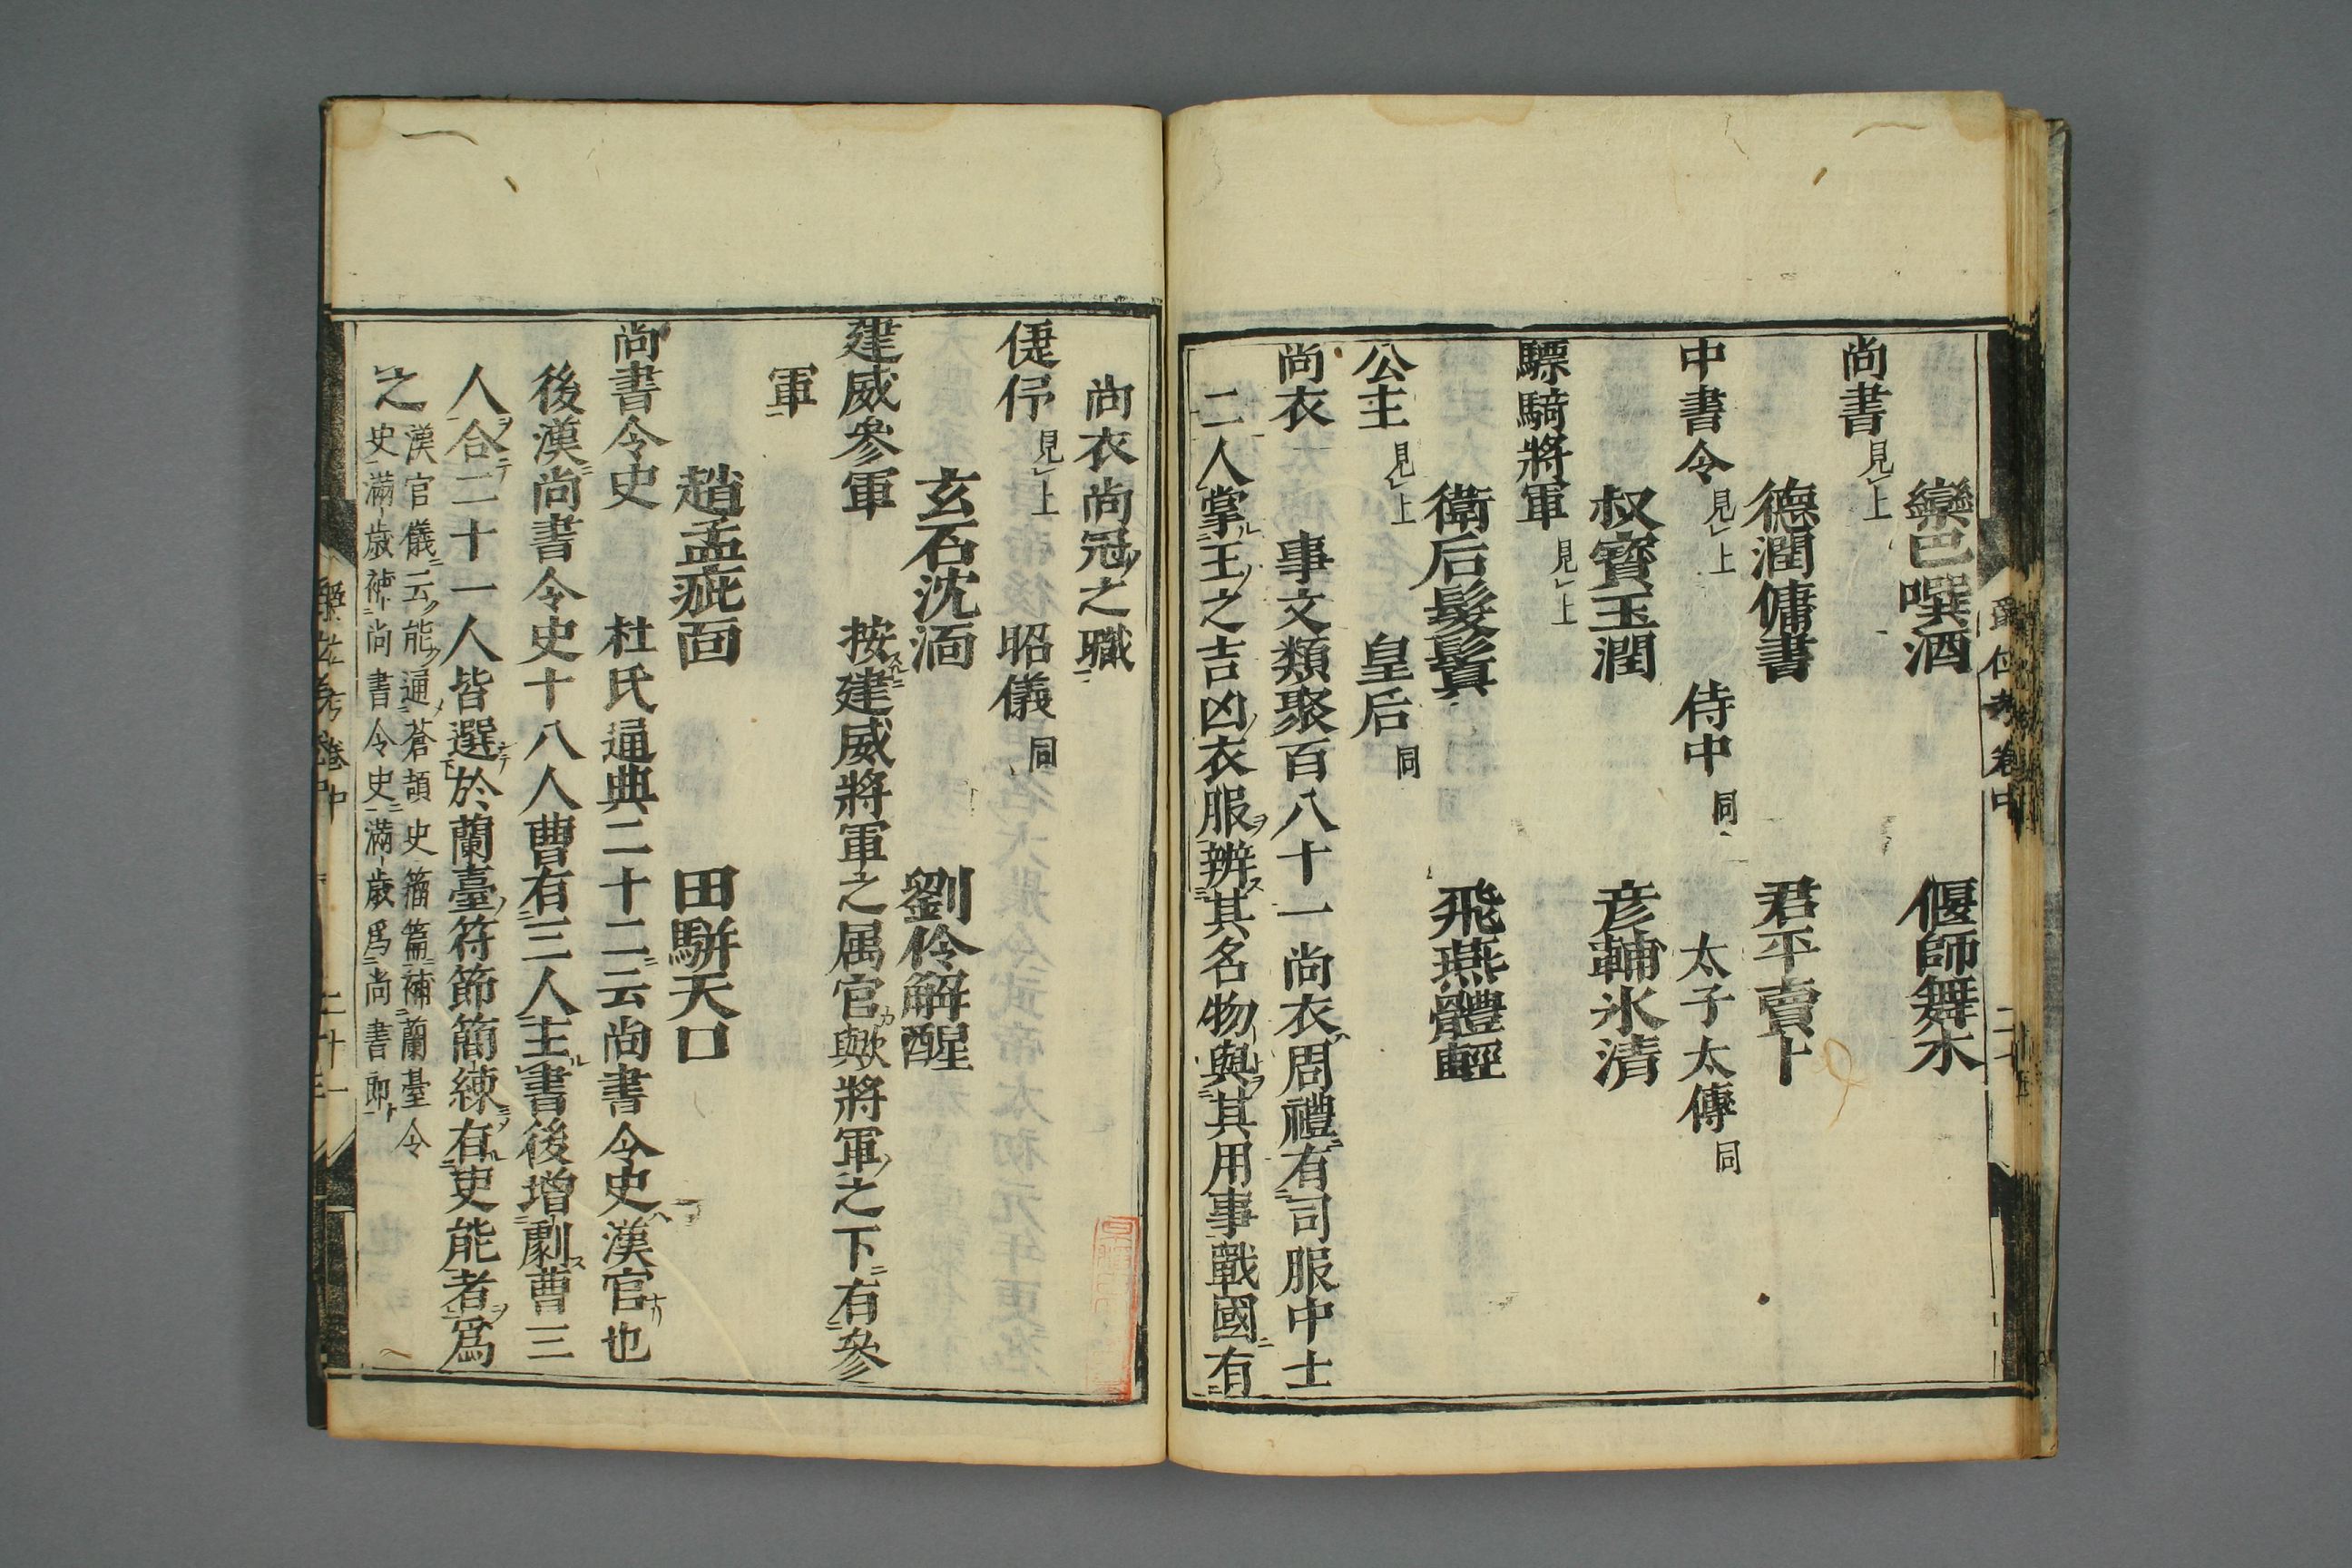 欒巴噀酒 偃師舞木
尚書見上
德潤傭書 君平賣卜
中書令見上 侍中同 太子太傳同
叔寳玉潤 彦輔氷清
驃騎將軍見上
衛后髮鬒 飛燕體輕
公主見上 皇后同
尚衣 事文類聚百八十一尚衣周禮有司服中士
二人掌王之吉凶衣服辨其名物與其用事戰國有
尚衣尚冠之職
倢伃見上 昭儀同
玄石沈湎 劉伶解酲
建威參軍 按建威將軍之属官歟將軍之下有參
軍
趙孟疵面 田駢天口
尚書令史 杜氏通典二十二云尚書令史漢官也
後漢尚書令史十八人曹有三人主書後增劇曹三
人合二十一人皆選於蘭臺符節簡練有吏能者爲
之漢官儀云能通蒼頡史籀篇補蘭臺令
史滿歳補尚書令史滿歳爲尚書郎